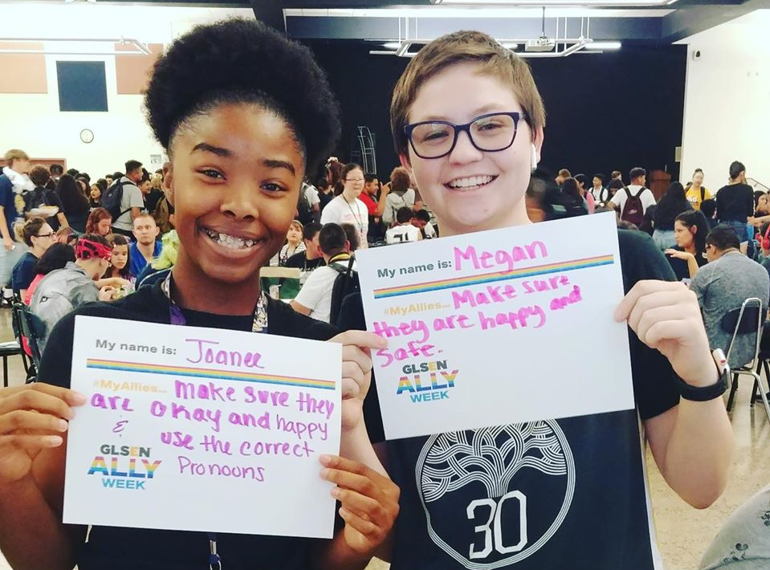 My name is: Joanee
#MyAllies... Make sure they
are okay and happy
& use the correct
Pronouns
GLSEN
ALLY
WEEK
My name is: Megan
#MyAllies... Make sure
they are happy and
safe.
GLSEN
ALLY
WEEK
30